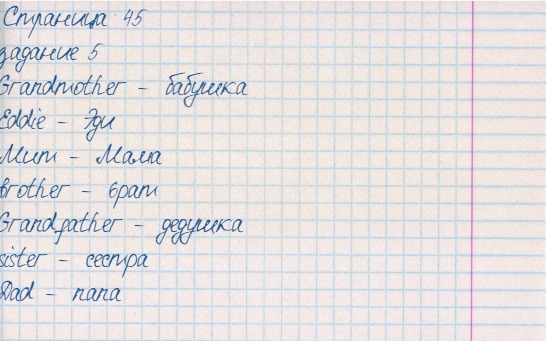 Страница 45
задание 5
Grandmother - бабушка
Eddie - Эди
Mum - Мама
brother - брат
Grandfather - дедушка
sister - сестра
Dad - папа